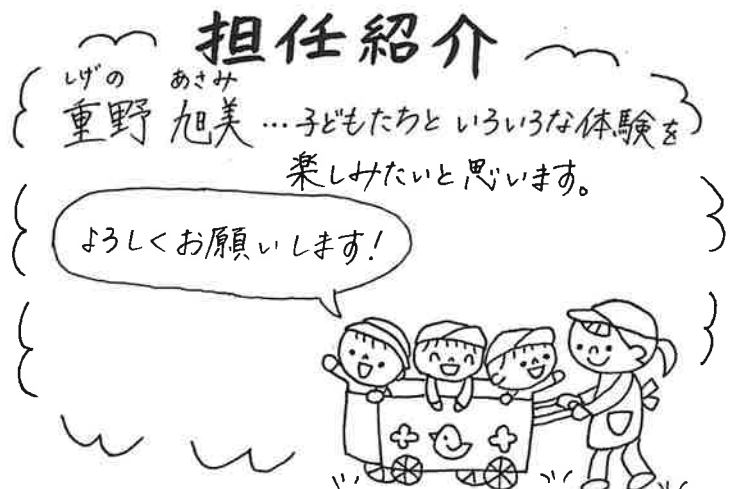 担任紹介
しげの あさみ
重野 旭美…子どもたちといろいろな体験を
楽しみたいと思います。
よろしくお願いします!